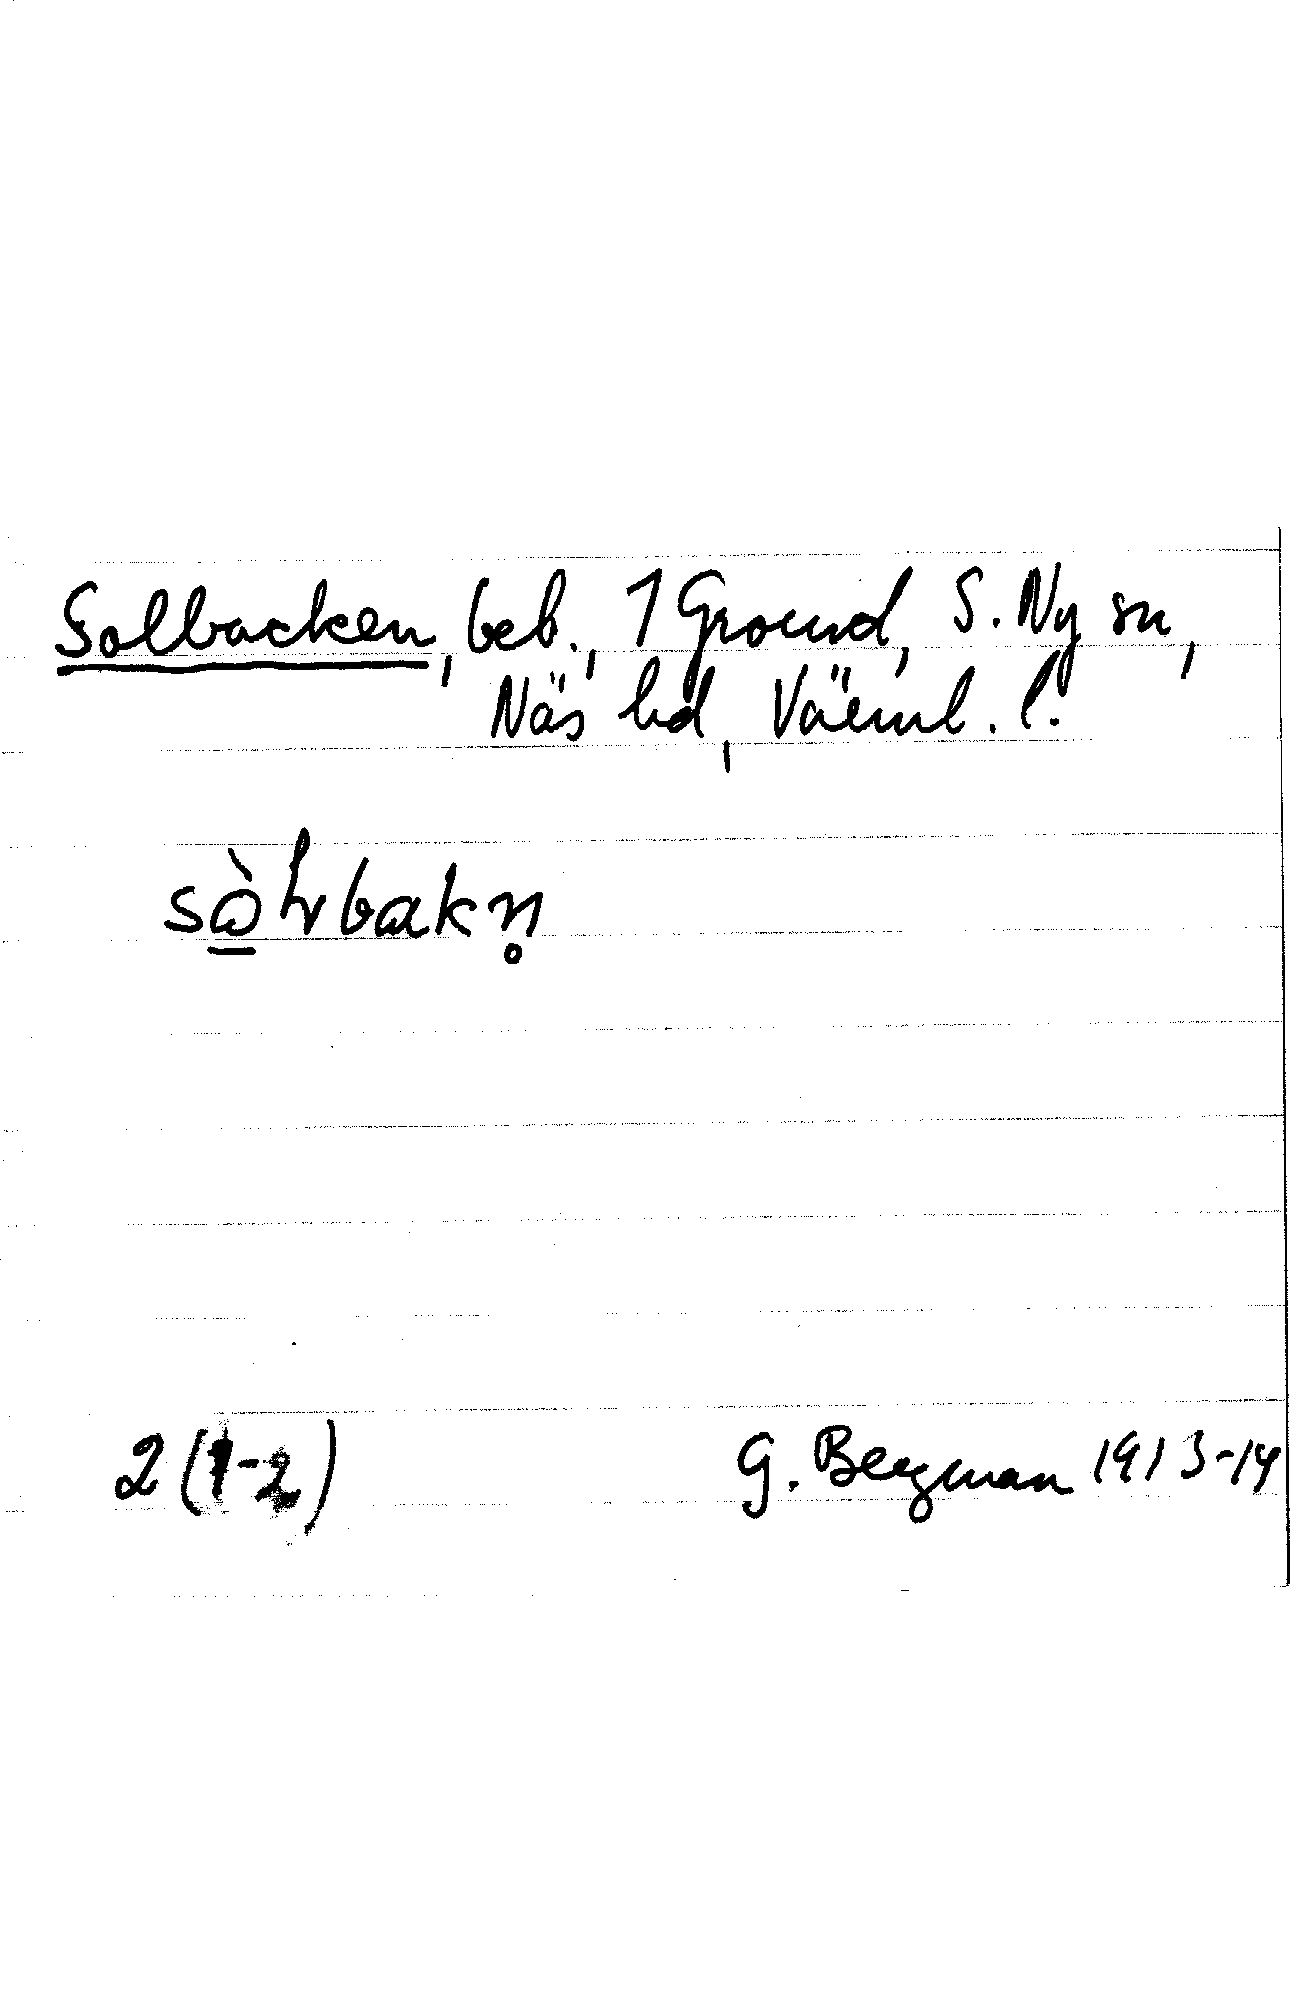 Solbacken, beb., 1 Ground, S. Ny sn,
Näs hd, Värml. l.
2 (1-2) G. Bergman 1913-14